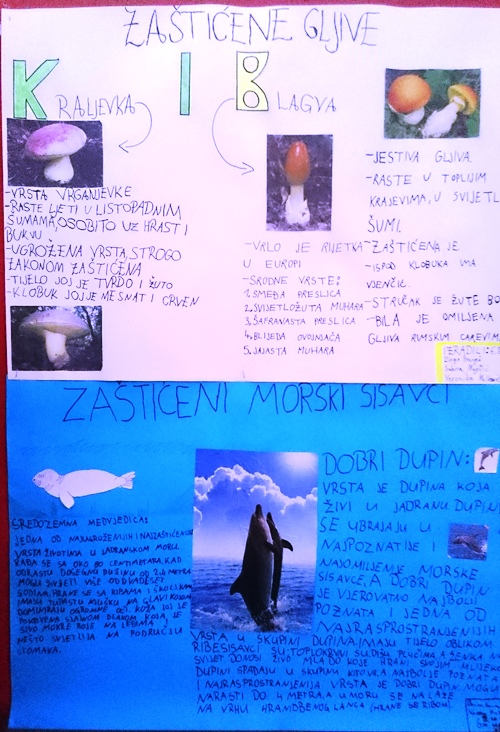 ZAŠTIĆENE GLJIVE
KRALJEVKA I BLAGVA
-VRSTA VRGANJEVKE
-RASTE LJETI U LISTOPADNIM
ŠUMAMA, OSOBITO UZ HRAST I
BUKVU
-UGROŽENA VRSTA, STROGO
ZAKONOM ZAŠTIĆENA
-TIJELO JOJ JE TVRDO I ŽUTO
-KLOBUK JOJ JE MESNAT I CRVEN
-VRLO JE RIJETKA
U EUROPI
-SRODNE VRSTE:
1. SMEĐA PRESLICA
2. SVIJETLOŽUTA MUHARA
3. ŠAFRANASTA PRESLICA
4. BLIJEDA OVOJNAČA
5. JAJASTA MUHARA
-JESTIVA GLJIVA.
-RASTE U TOPLIJIM
KRAJEVIMA, U SVIJETL
ŠUMI.
-ZAŠTIĆENA JE
-ISPOD KLOBUKA IMA
VJENČIĆ.
-STRUČAK JE ŽUTE BO
-BILA JE OMILJENA
GLJIVA RUMSKIM CAREVIM
ZAŠTIĆENI MORSKI SISAVCI
SREDOZEMNA MEDVJEDICA:
JEDNA OD NAJUGROŽENIJIH I NAJZAŠTIĆENIJ
VRSTA ŽIVOTINJA U JADRANSKOM MORU.
RAĐA SE SA OKO 80 CENTIMETARA, KAD
ODRASTU DOSEGNU DUŽINU OD 2,4 METRA
MOGU ŽIVJETI VIŠE OD DVADESET
GODINA, HRANE SE SA RIBAMA I ŠKOLJKAMA
IMAJU NJUŠKU NA GLAVI KOJOM
DOMINIRAJU OGROMNE OČI. KOŽA JOJ JE
POKRIVENA SJAJNOM DLAKOM KOJA JE
SIVO MODRE BOJE NA LEĐIMA I
NEŠTO SVJETLIJA NA PODRUČJU
STOMAKA.
DOBRI DUPIN:
VRSTA JE DUPINA KOJA
ŽIVI U JADRANU DUPIN
SE UBRAJAJU U
NAJPOZNATIJE I
NAJOMILJENIJE MORSKE
SISAVCE, A DOBRI DUPIN
JE VJEROVATNO NAJBOLJI
POZNATA I JEDNA OD
NAJRASPROSTRANJENIJIH
VRSTA U SKUPINI DUPINA IMAJU TIJELO OBLIKOM
RIBE SISAVCI SU, TOPLOKRVNI SU, DIŠU PLUĆIMA, A ŽENKA NA
SVIJET DONOSI ŽIVO MLADO KOJE HRANI SVOJIM MLIJEK
DUPINI SPADAJU U SKUPINU KITOVA. NAJBOLJE POZNATA
I NAJRASPROSTRANJENIJA VRSTA JE DOBRI DUPIN. MOGU
NARASTI DO 4 METRA, A U MORU SE NALAZE
NA VRHU HRANIDBENOG LANCA (HRANE SE RIBOM)